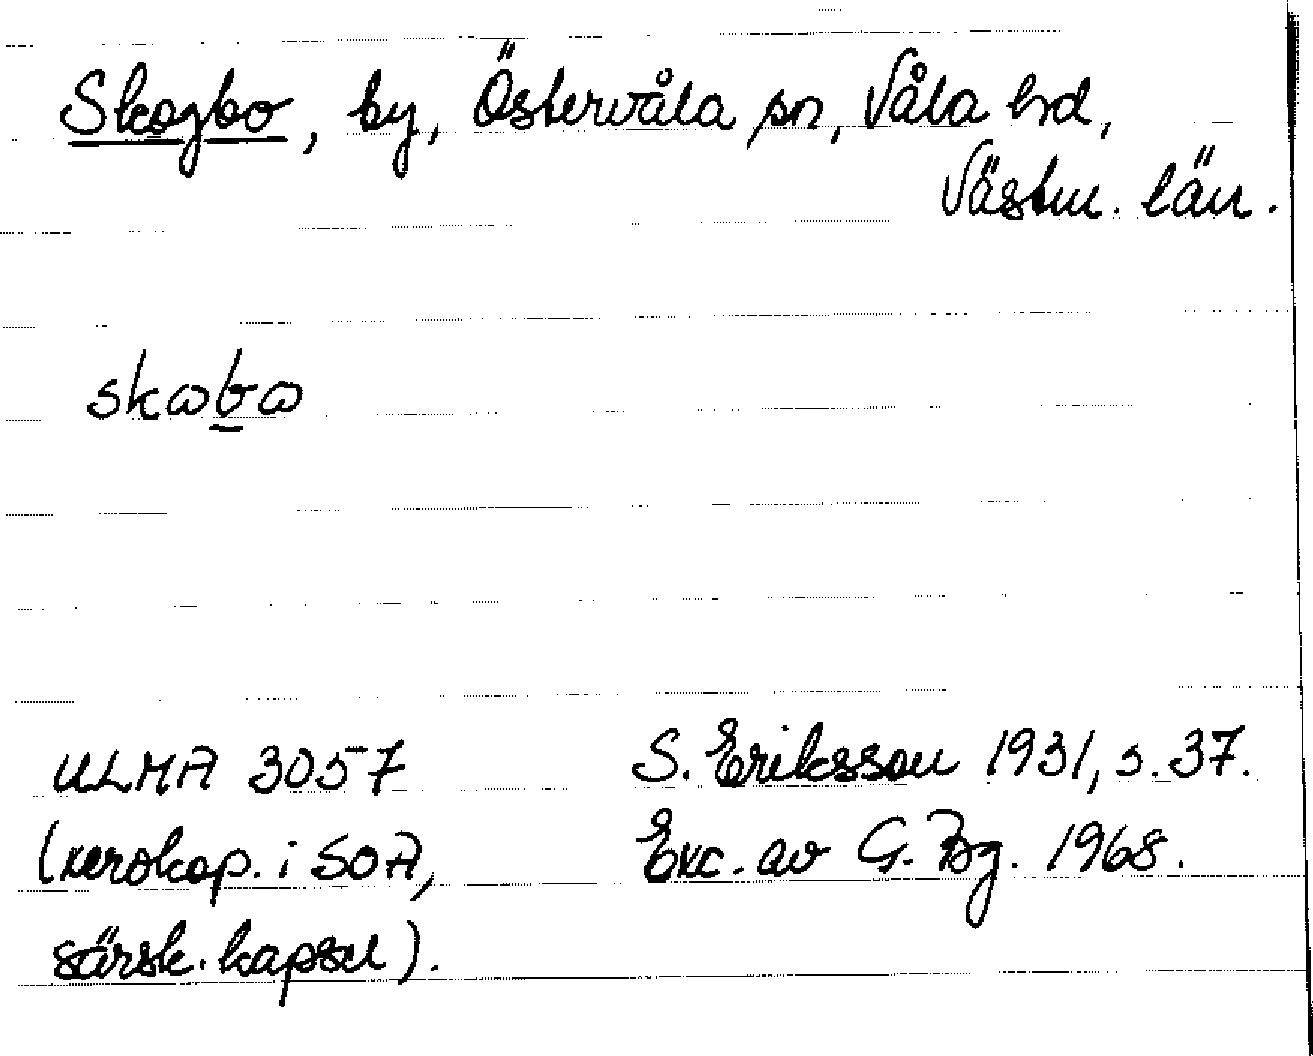 Skogbo, by, Östervåla sn, Våla hd,
Västm. län.
skωbω
ULMA 3057
(xerokop. i SOA,
särsk. kapsel).
S. Eriksson 1931, s. 37.
Exc. av G. Bg. 1968.